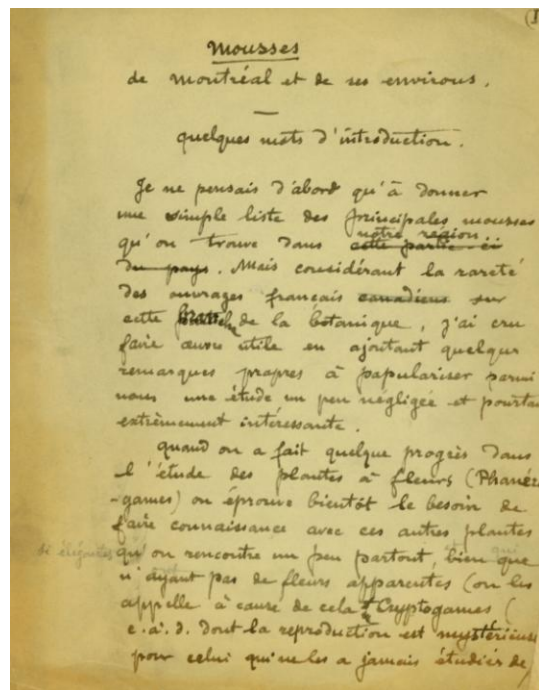 (I
Mousses
de Montréal et de ses environs.
quelques mots d'introduction.
Je ne pensais d'abord qu'à donner
une simple liste des principales mousses
notre région
qu'on trouve dans cette partie-ci
du pays. Mais considérant la rareté
des ouvrages français canadiens sur
cette branche de la botanique, j'ai cru
faire œuvre utile en ajoutant quelques
remarques propres à populariser parmi
nous une étude un peu négligée et pourta
extrêmement intéressante.
Quand on a fait quelque progrès dans
l'étude des plantes à fleurs (Phané
-games) on éprouve bientôt le besoin de
faire connaissance avec ces autres plantes
qu'on rencontre un peu partout, bien que
n'ayant pas de fleurs apparentes (on les
appelle à cause de cela Cryptogames (
c.à.d. dont la reproduction est mystérieuse
pour celui qui ne les a jamais étudiées de